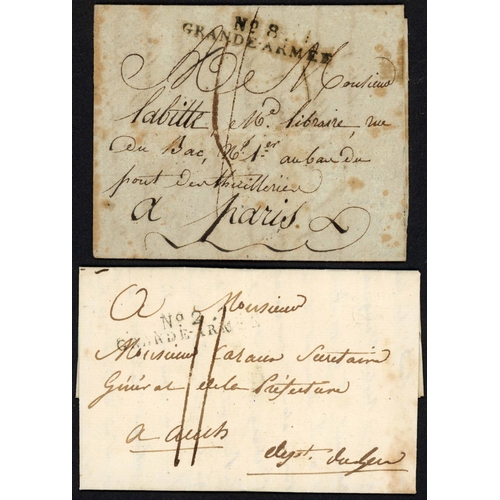 No. 8.
GRANDE-ARMÉE
A Monsieur
Labitte, Md. libraire, rue
du Bac, No. 1.er au bas du
pont des thuilleries
a paris.
No. 2.
GRANDE-ARMÉE
A Monsieur
Monsieur Secretaire
Général de la Préfecture
a auch
dept. du Gers